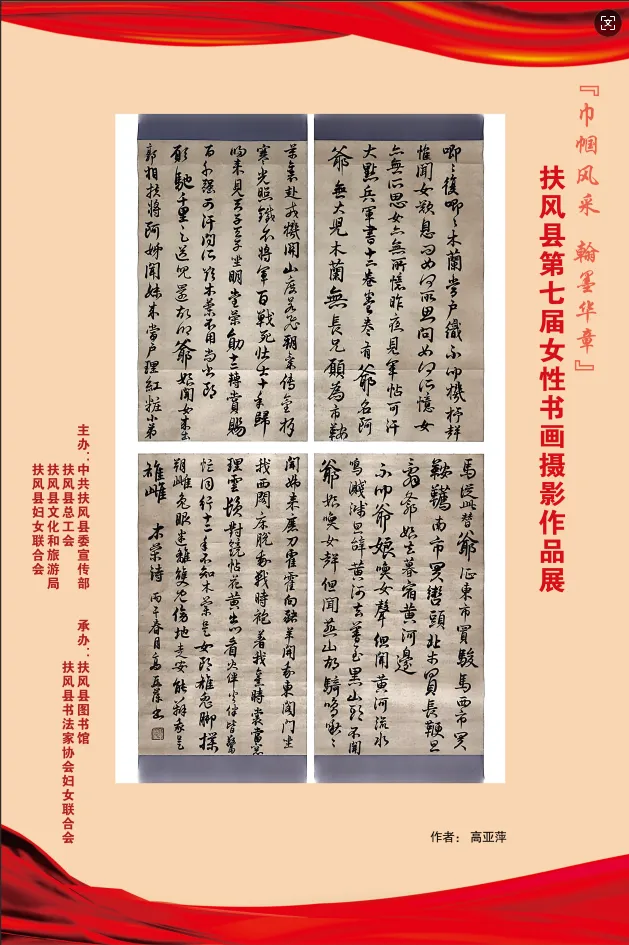 『巾帼风采 翰墨华章』
扶风县第七届女性书画摄影作品展
唧唧復唧唧木蘭當户織不聞機杼聲
惟聞女歎息問女何所思問女何所憶女
亦無所思女亦無所憶昨夜見軍帖可汗
大點兵軍書十二卷卷卷有爺名阿
爺無大兒木蘭無長兄願為市鞍
馬從此替爺征東市買駿馬西市買
鞍韉南市買轡頭北市買長鞭旦
辭爺娘去暮宿黄河邊
不聞爺娘喚女聲但聞黄河流水
鳴濺濺旦辭黄河去暮至黑山頭不聞
爺娘喚女聲但聞燕山胡騎鳴啾啾
萬里赴戎機關山度若飛朔氣傳金柝
寒光照鐵衣將軍百戰死壯士十年歸
歸來見天子天子坐明堂策勛十二轉賞賜
百千强可汗問所欲木蘭不用尚書郎
願馳千里足送兒還故鄉爺娘聞女來出
郭相扶將阿姊聞妹來當户理紅粧小弟
聞姊來磨刀霍霍向豬羊開我東閣門坐
我西閣床脱我戰時袍著我舊時裳當窗
理雲鬢對鏡帖花黄出門看火伴火伴皆驚
忙同行十二年不知木蘭是女郎雄兔脚撲
朔雌兔眼迷離雙兔傍地走安能辨我是
雄雌 木蘭詩 丙午春月高亚萍书
主办：中共扶风县委宣传部
扶风县总工会
扶风县文化和旅游局
扶风县妇女联合会
承办：扶风县图书馆
扶风县书法家协会妇女联合会
作者： 高亚萍